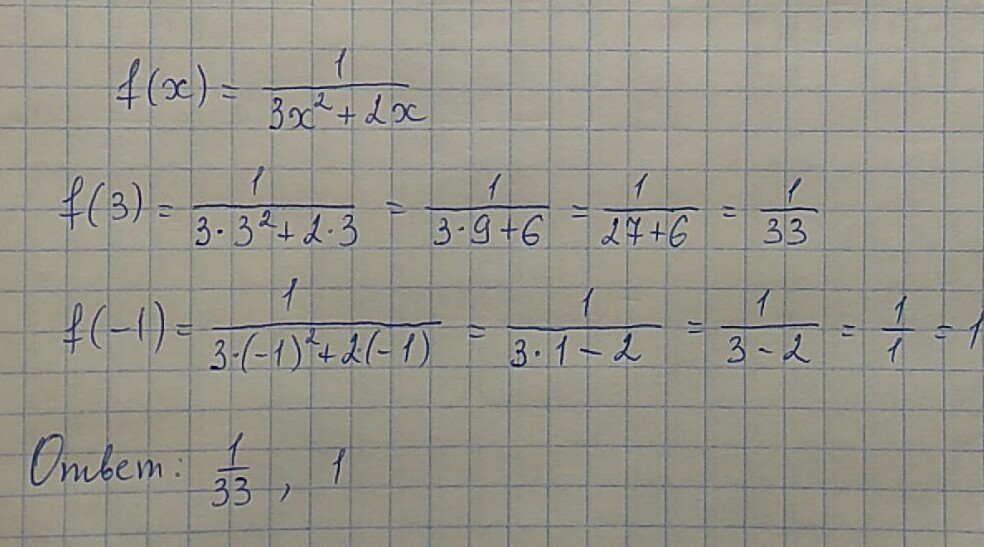 f(x) = 1/(3x² + 2x)
f(3) = 1/(3·3² + 2·3) = 1/(3·9+6) = 1/(27+6) = 1/33
f(-1) = 1/(3·(-1)²+2(-1)) = 1/(3·1-2) = 1/(3-2) = 1/1 = 1
Ответ: 1/33, 1